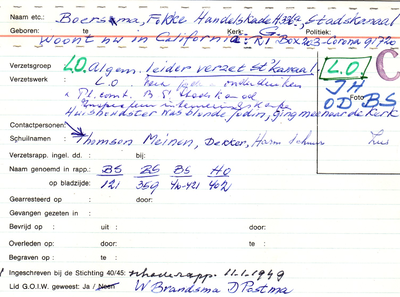 Naam etc.: Boersma, Fokke Handelskade H33a, Stadskanaal
Geboren: te Kerk: G. Politiek:
woont nu in California: R1 Box 203 Corona 91720
Verzetsgroep L.O. Algem. leider verzet St'kanaal. L.O. C
Verzetswerk : L.O.
JH
Pl. comt. B.S. Stadskanaal OD BS
Foto
Huishoudster was blinde jodin, ging mee naar de Kerk
Contactpersonen:
Schuilnamen : Thomson Meinen, Dekker, Harm
Verzetsrapp. ingel. dd. : bij:
Naam genoemd in rapp.: BS BS BS HO
op bladzijde: 121 359 420-421 402
Gearresteerd op : door:
Gevangen gezeten in :
Bevrijd op : uit : door:
Overleden op: door: te:
Begraven op : te :
Ingeschreven bij de Stichting 40/45: rapp. 11-1-1949
Lid G.O.I.W. geweest: Ja / Neen W Brandsma D Postma